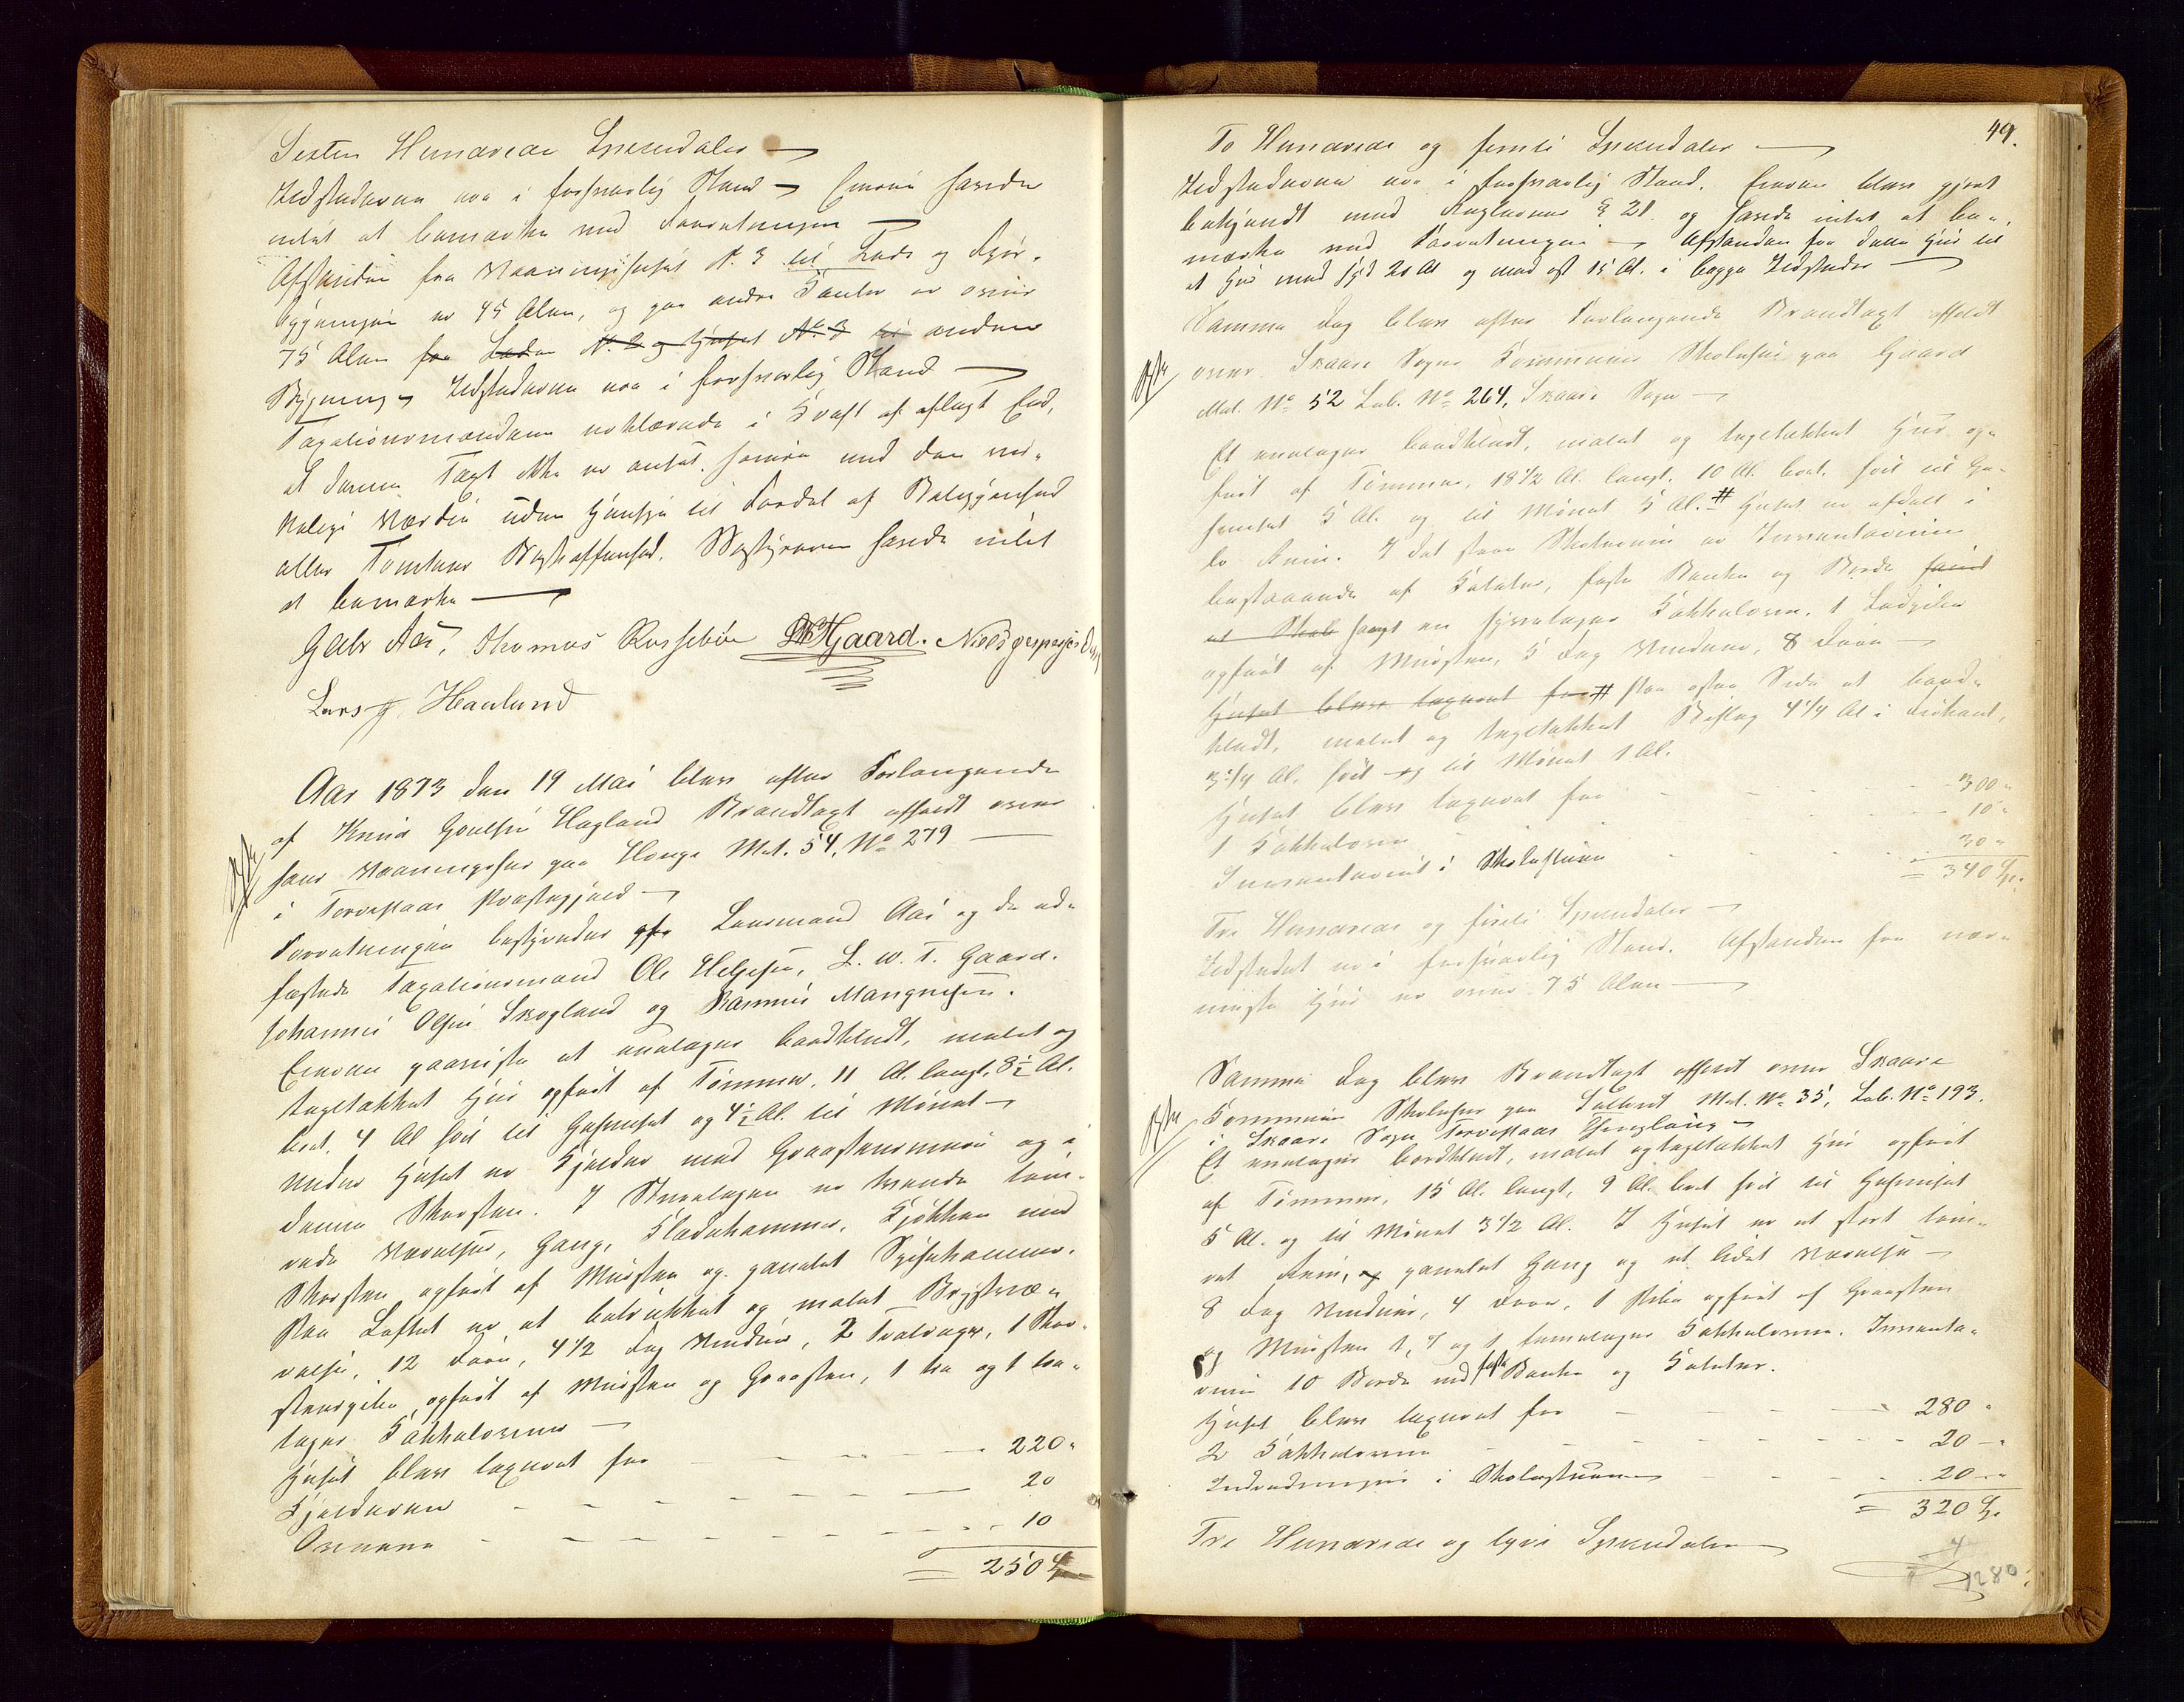 Sexten Hundrede Speciedaler —
Ildstederne var i forsvarlig Stand — Eieren havde
intet at bemærke med Forretningen —
Afstanden fra Vaaningshuset N. 3 til Lade og Fjøs-
bygningen er 45 Alen, og paa andre Kanter er over
75 Alen fra Laden N. 2 og Huset No 3 til anden
Bygning — Ildstederne var i forsvarlig Stand —
Taxationsmændene erklærede i Kraft af aflagt Eed,
at denne Taxt ikke er ansat høiere end den vir-
kelige Værdie uden Hensyn til Fordel af Beliggenhed
eller Tomtens Beskaffenhed. Bestyreren havde intet
at bemærke —
Gabr Aas, Thomas Rossebøe LWTGaard. Niels Jespersen
Lars J. Haulund
Aar 1873 den 19 Mai blev efter Forlangende
af Knud Poulsen Hagland Brandtaxt afholdt over
hans Vaaningshus paa Hauge Mat. 54, No 279 —
i Torvestads Præstegjeld —
Forretningen bestyredes af Lensmand Aas og de ed-
fæstede Taxationsmænd Ole Helgesen, L. W. T. Gaard.
Johannes Olsen Skogland og Rasmus Mangnesen.
Eieren paaviste et enetages bordklædt, malet og
tagetækket Huus opført af Tømmer, 11 Al. langt, 8½ Al.
bret, 4 Al høit til Gesimset og 4½ Al. til Mønet —
Under Huset er Kjelder med Graastensmuur og i
denne Skorsten. I Stueetagen er trende tøm-
rede Værelser, Gang, Kledekammer, Kjøkken med
Skorsten opført af Muursten og panelet Spisekammer.
Paa Loftet er et betrukket og malet Bryst væ-
relse, 12 Døre, 4½ Fag Vinduer, 2 Trapper, 1 Skor-
stenspibe, opført af Muursten og Graasten, 1 tre og 1 to-
tages Kakkelovne —
Huset blev taxeret for — — — 220 "
Kjelderen — — — 20
Ovnene — — — 10
= 250 Sp
49.
To Hundrede og femti Speciedaler —
Ildstederne var i forsvarlig Stand. Eieren blev gjort
bekjendt med Reglernes § 21. og havde intet at be-
mærke med Forretningen — Afstanden fra dette Huus til
et Huus mod Syd 20 Al og mod øst 15 Al. i begge Ildsteder —
Samme Dag blev efter Forlangende Brandtaxt afholdt
over Skaare Sogns Kommunes Skolehus paa Gaard
Mat. No 52 Løb. No 264, Skaare Sogn —
Et enetages bordklædt, malet og tagetækket Huus op-
ført af Tømmer, 19½ Al. langt. 10 Al. bret. høit til Ge-
simset 5 Al. og til Mønet 5 Al. # Huset er afdelt i
to Rum. I det store Skolerum er Inventarium
bestaaende af Katheder, faste Bænke og Borde samt
et Skab samt en fireetages Kakkelovn. 1 Ildpibe
opført af Muursten, 5 Fag Vinduer, 8 Døre —
Huset blev taxeret for # Paa østre Side et bord-
klædt, malet og tagetækket Bislag 4¼ Al i Firkant,
3¼ Al. høit og til Mønet 1 Al.
Huset blev taxeret for — — — 300 "
1 Kakkelovn — — — 10 "
Inventariet i Skolestuen — — — 30 "
= 340 Sp.
Tre Hundrede og firti Speciedaler —
Ildstedet er i forsvarlig Stand. Afstanden fra nær-
meste Huus er over 75 Alen —
Samme Dag blev Brandtaxt afholdt over Skaare
Kommunes Skolehus paa Mat. No 35, Løb. No 193.
i Skaare Sogn Torvestads Thinglaug —
Et enetages bordklædt, malet og tagetækket Huus opført
af Tømmer, 15 Al. langt, 9 Al. bret høit til Gesimset
5 Al. og til Mønet 3½ Al. I Huset er et stort tøm-
ret Rum, og panelet Gang og et lidet Værelse —
8 Fag Vinduer, 4 Døre, 1 Pibe opført af Graasten
og Muursten 1, 4 og 1 femetages Kakkelovne. Inventa-
rium 10 Borde med faste Bænke og Katheder.
Huset blev taxeret for — — — 280 "
2 Kakkelovne — — — 20 — "
Indredningen i Skolestuen — — — 20 — "
= 320 Sp.
Tre Hundrede og tyve Speciedaler —
4
1280